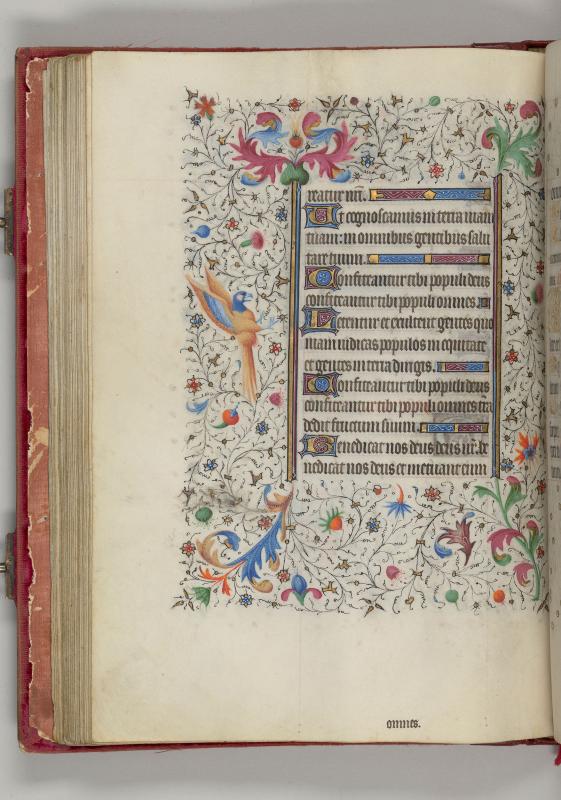 reatur nr̄i.
Ut cognoscamus in terra uiam
tuam: in omnibus gentibus salu
tare tuum.
Confiteantur tibi populi deus
confiteantur tibi populi omnes.
Letentur et exultent gentes quo
niam iudicas populos in equitate
et gentes in terra dirigis.
Confiteantur tibi populi deus
confiteantur tibi populi omnes t̄ra
dedit fructum suum.
Benedicat nos deus deus nr̄ be
nedicat nos deus et metuant eum
omnes.